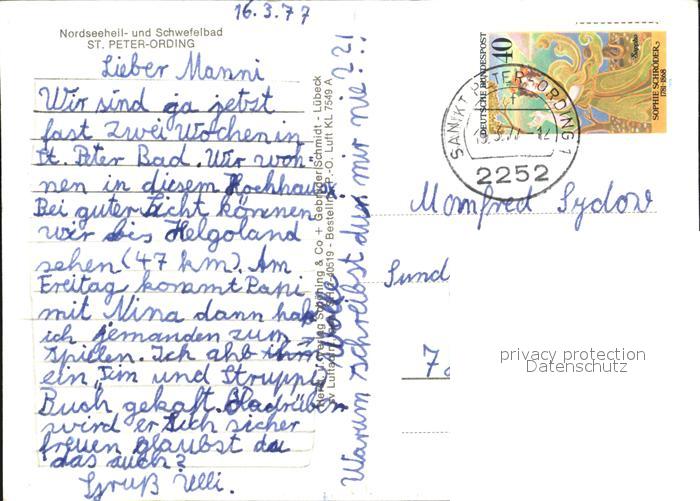 16.3.77
Nordseeheil- und Schwefelbad
ST. PETER-ORDING
Lieber Manni
Wir sind ja jetzt
fast zwei Wochen in
St. Peter Bad. Wir woh-
nen in diesem Hochhaus
Bei guter Sicht können
wir bis Helgoland
sehen (47 km). Am
Freitag kommt Papi
mit Nina dann hab
ich jemanden zum
Spielen. Ich ahb ihm
ein Jim und Struppi
Buch gekaft. Hadrüber
wird er sich sicher
freuen glaubst du
das auch?
Gruß Ulli.
Warum schreibst du mir nie?2!
Schöning & Co + Gebrüder Schmidt - Lübeck
40519 - Bestell P.-O. Luft KL 7549 A
DEUTSCHE BUNDESPOST
40
Sappho
SOPHIE SCHRÖDER
1781-1868
SANKT PETER-ORDING 1
2252
Manfred Sydow
Sund
7
privacy protection
Datenschutz